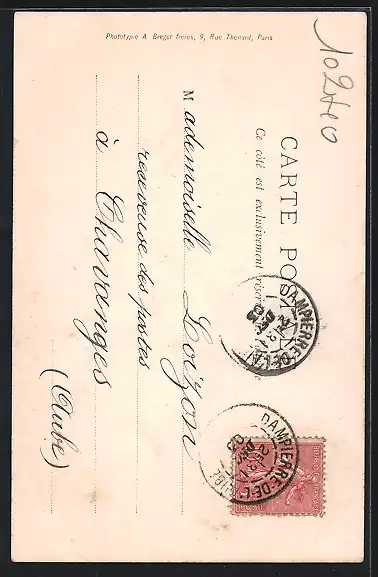 Phototypie A Breger frères, 9, Rue Thenard, Paris
102
CARTE POSTALE
Ce côté est exclusivement réservé
Mademoiselle Loizon
receveuse des postes
à Chavanges
(Aube)
DAMPIERRE-DE-L'AUBE
DAMPIERRE-DE-L'AUBE